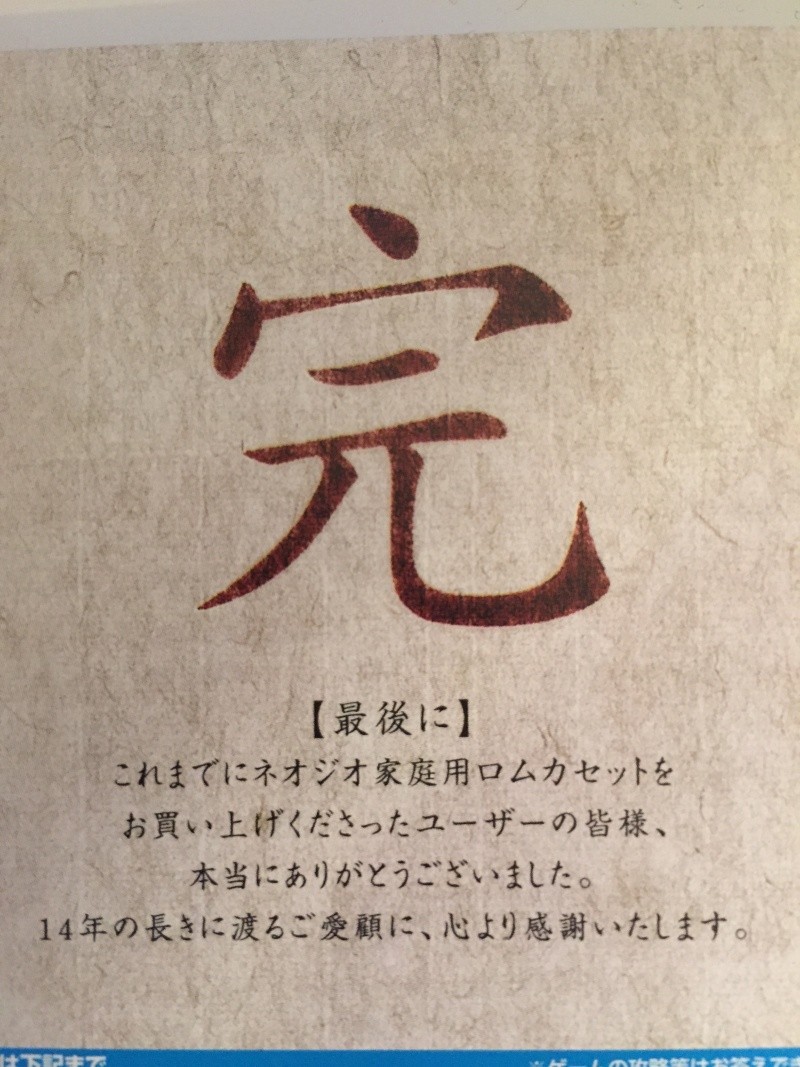 完
【最後に】
これまでにネオジオ家庭用ロムカセットを
お買い上げくださったユーザーの皆様、
本当にありがとうございました。
14年の長きに渡るご愛顧に、心より感謝いたします。
は下記まで
※ゲームの攻略等はお答えでき